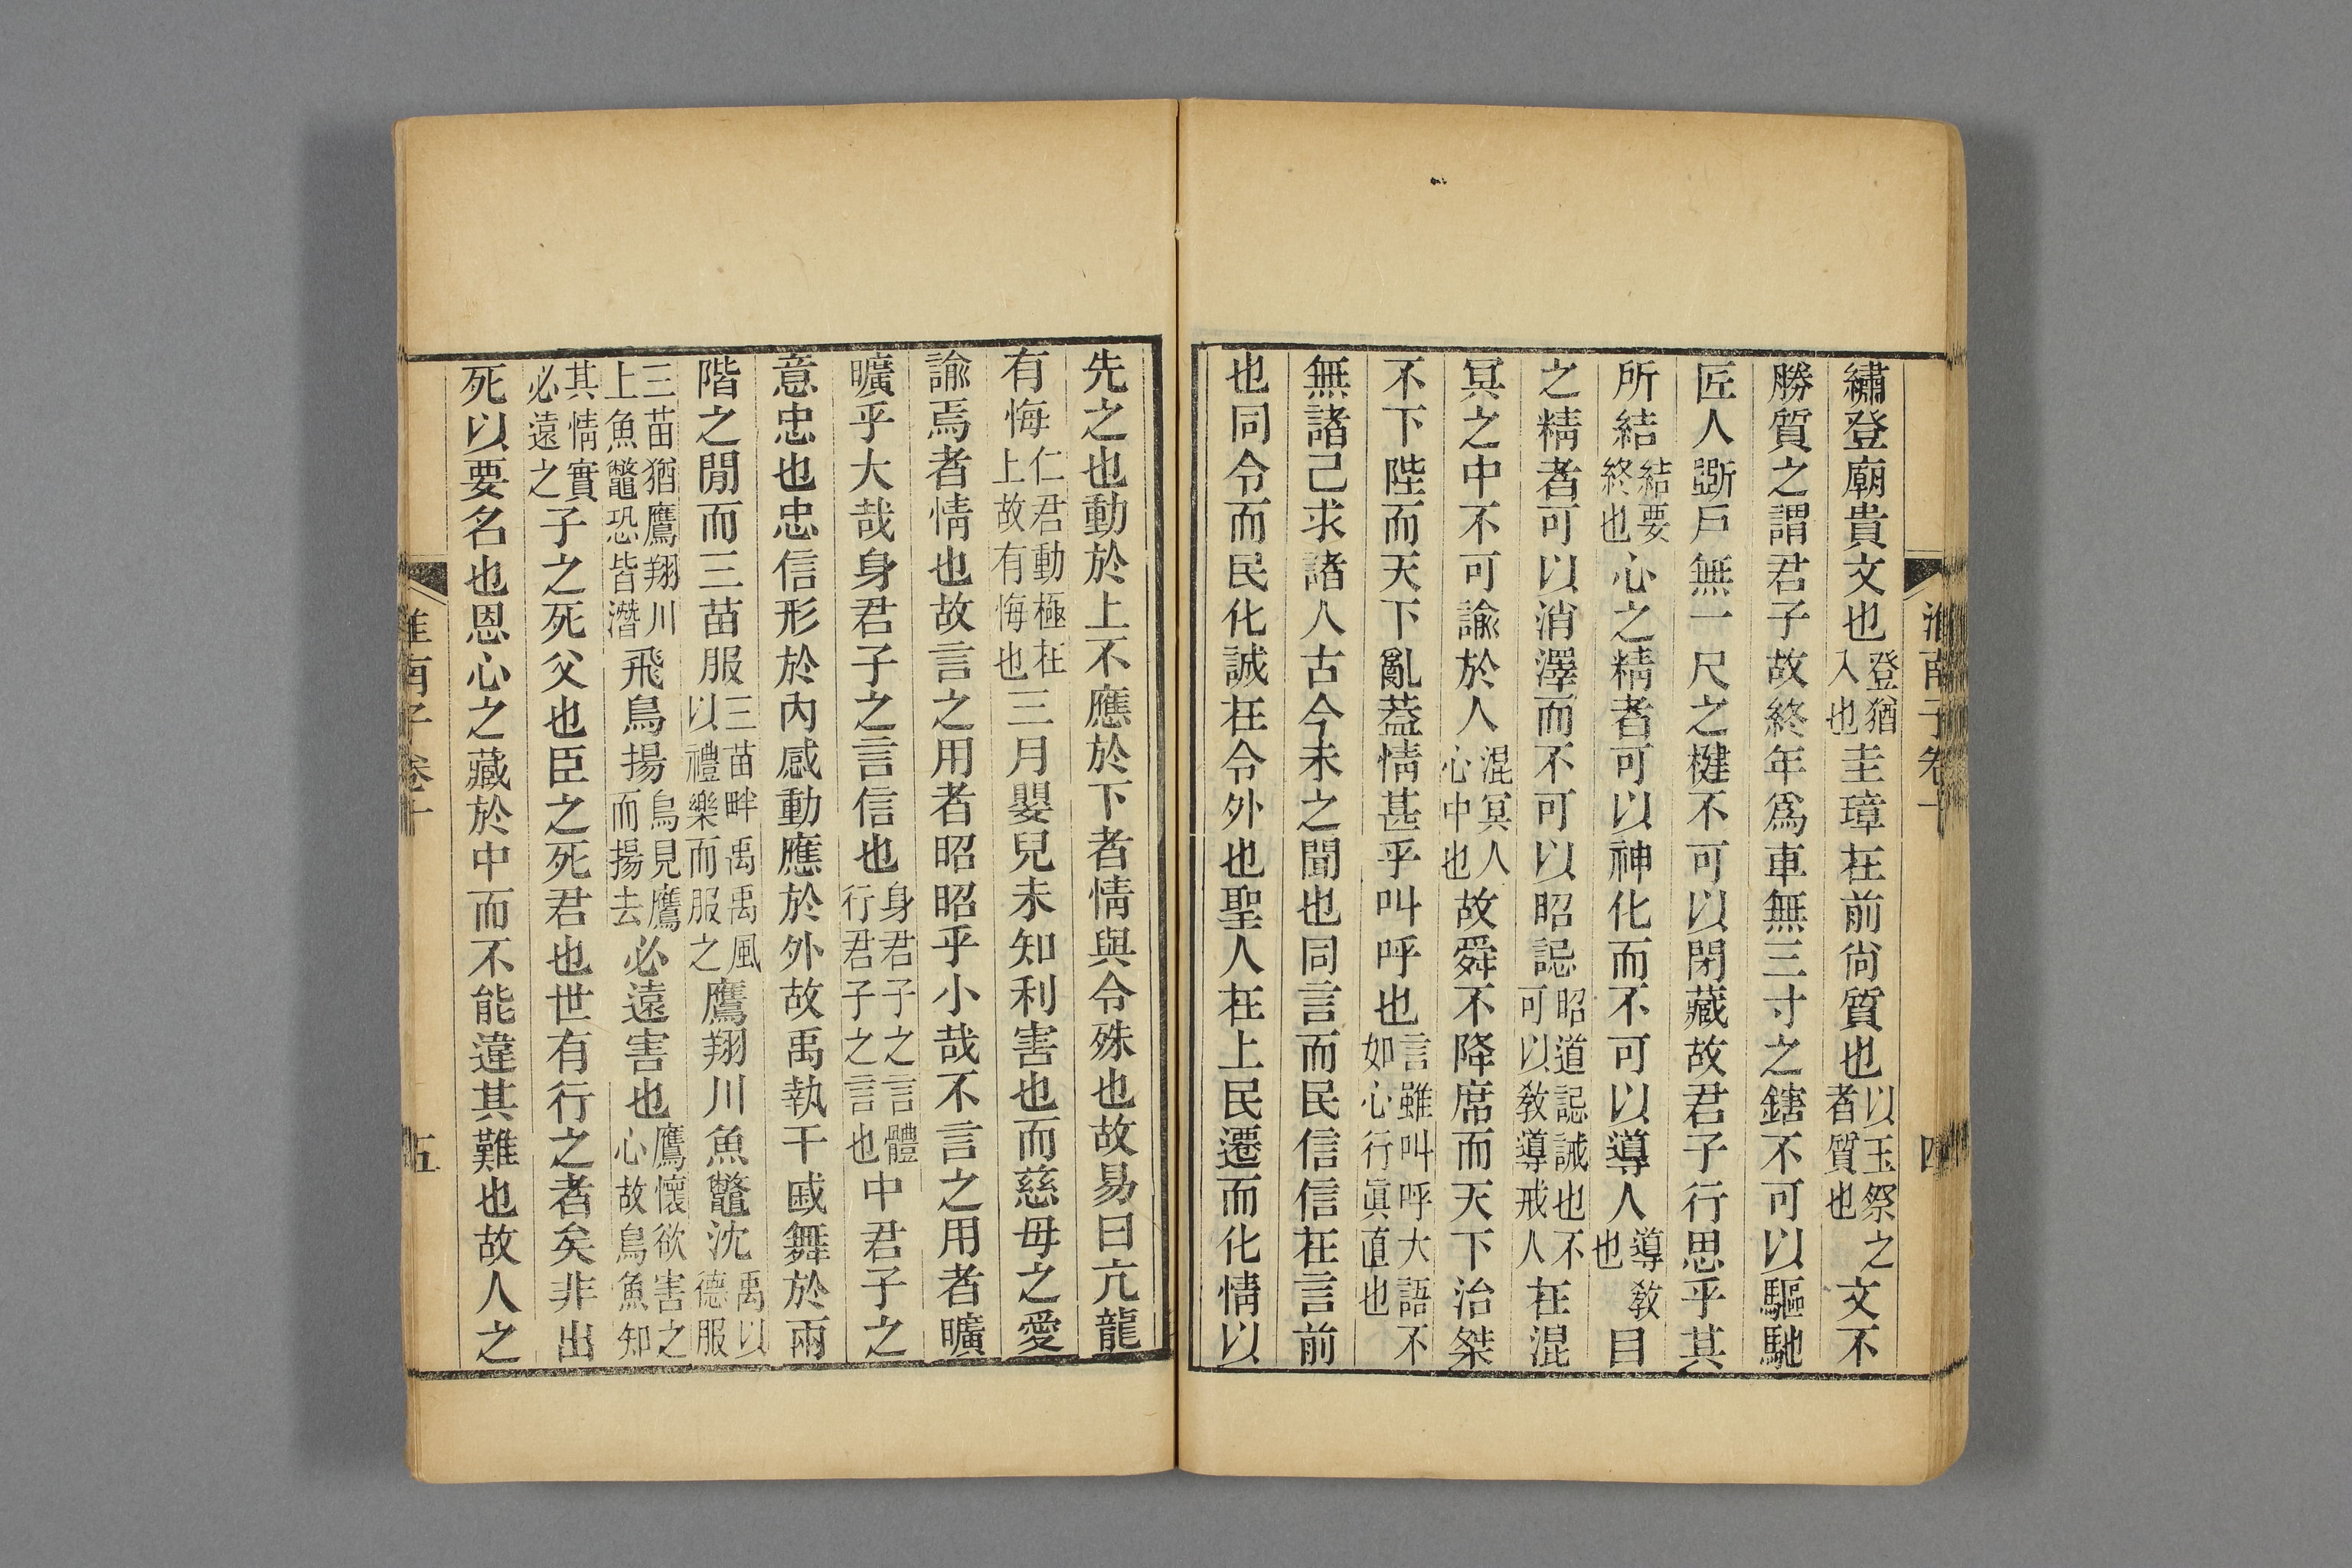 淮南子卷十
四
繡登廟貴文也登猶入也圭璋在前尚質也以玉祭之者質也文不
勝質之謂君子故終年爲車無三寸之鎋不可以驅馳
匠人斲戶無一尺之楗不可以閉藏故君子行思乎其
所結結要終也心之精者可以神化而不可以導人導敎也目
之精者可以消澤而不可以昭誋昭道誋誡也不可以敎導戒人在混
冥之中不可諭於人混冥人心中也故舜不降席而天下治桀
不下陛而天下亂蓋情甚乎叫呼也言雖叫呼大語不如心行眞直也
無諸己求諸人古今未之聞也同言而民信信在言前
也同令而民化誠在令外也聖人在上民遷而化情以
先之也動於上不應於下者情與令殊也故易曰亢龍
有悔仁君動極在上故有悔也三月嬰兒未知利害也而慈母之愛
諭焉者情也故言之用者昭昭乎小哉不言之用者曠
曠乎大哉身君子之言信也身君子之言體行君子之言也中君子之
意忠也忠信形於內感動應於外故禹執干戚舞於兩
階之閒而三苗服三苗畔禹禹風以禮樂而服之鷹翔川魚鼈沈禹以德服
三苗猶鷹翔川上魚鼈恐皆潛飛鳥揚鳥見鷹而揚去必遠害也鷹懷欲害之心故鳥魚知
其情實必遠之子之死父也臣之死君也世有行之者矣非出
死以要名也恩心之藏於中而不能違其難也故人之
淮南子卷十
五